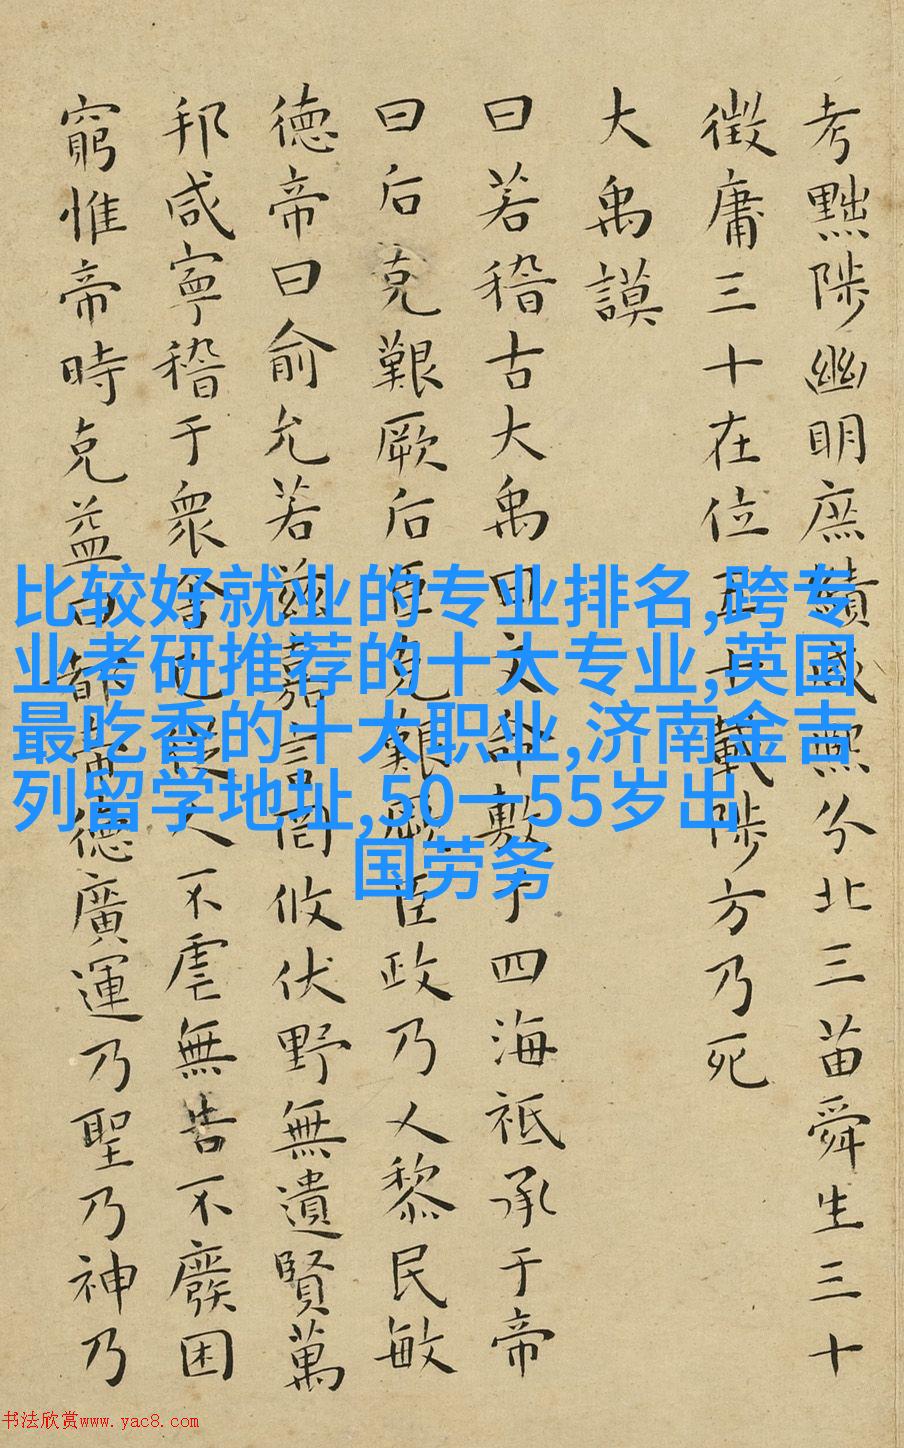 考黜陟幽明庶績咸熙分北三苗舜生三十
徵庸三十在位五十載陟方乃死
大禹謨
曰若稽古大禹曰文命敷于四海祗承于帝
曰后克艱厥后臣克艱厥臣政乃乂黎民敏
德帝曰俞允若茲嘉言罔攸伏野無遺賢萬
邦咸寧稽于衆舍己從人不虐無告不廢困
窮惟帝時克益曰都帝德廣運乃聖乃神乃
比较好就业的专业排名,跨专
业考研推荐的十大专业,英国
最吃香的十大职业,济南金吉
列留学地址,50一55岁出
国劳务
书法欣赏www.yac8.com